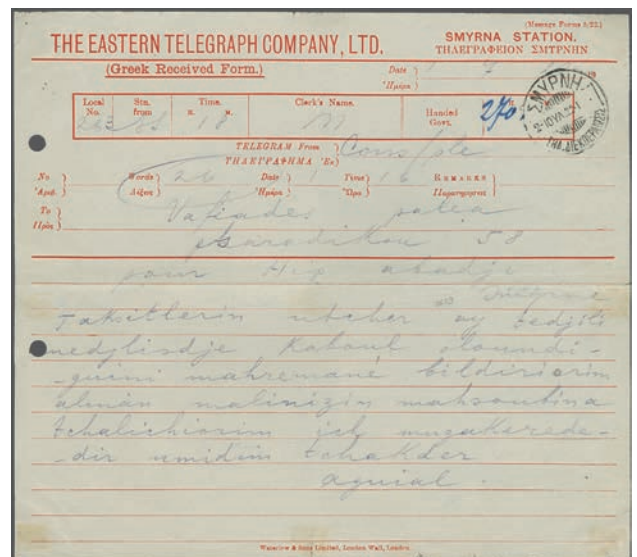 (Message Forms 5/22.)
THE EASTERN TELEGRAPH COMPANY, LTD.
SMYRNA STATION.
ΤΗΛΕΓΡΑΦΕΙΟΝ ΣΜΥΡΝΗΝ
(Greek Received Form.)
Date
Ἡμέρα
Local No.
Stn. from
Time.
H. M.
Clerk's Name.
Handed Govt.
270
ΣΜΥΡΝΗ
18
M
TELEGRAM From
ΤΗΛΕΓΡΑΦΗΜΑ Ἐκ
Cons/ple
No
Ἀριθ.
Words
Λέξεις
26
Date
Ἡμέρα
1
Time
Ὥρα
16
REMARKS
Παρατηρήσεις
To
Πρὸς
Vafiades patea
58
pour Hip abadji
Smyrne
Taksitlerin utcher ay tedjili
medjlisdje Kaboul oloundi-
-guini mahremané bildiriorim
alman malinizin mahsoubina
tchalichiorim ich muzakerede-
-dir umidim tchokder
aguial.
Waterlow & Sons Limited, London Wall, London